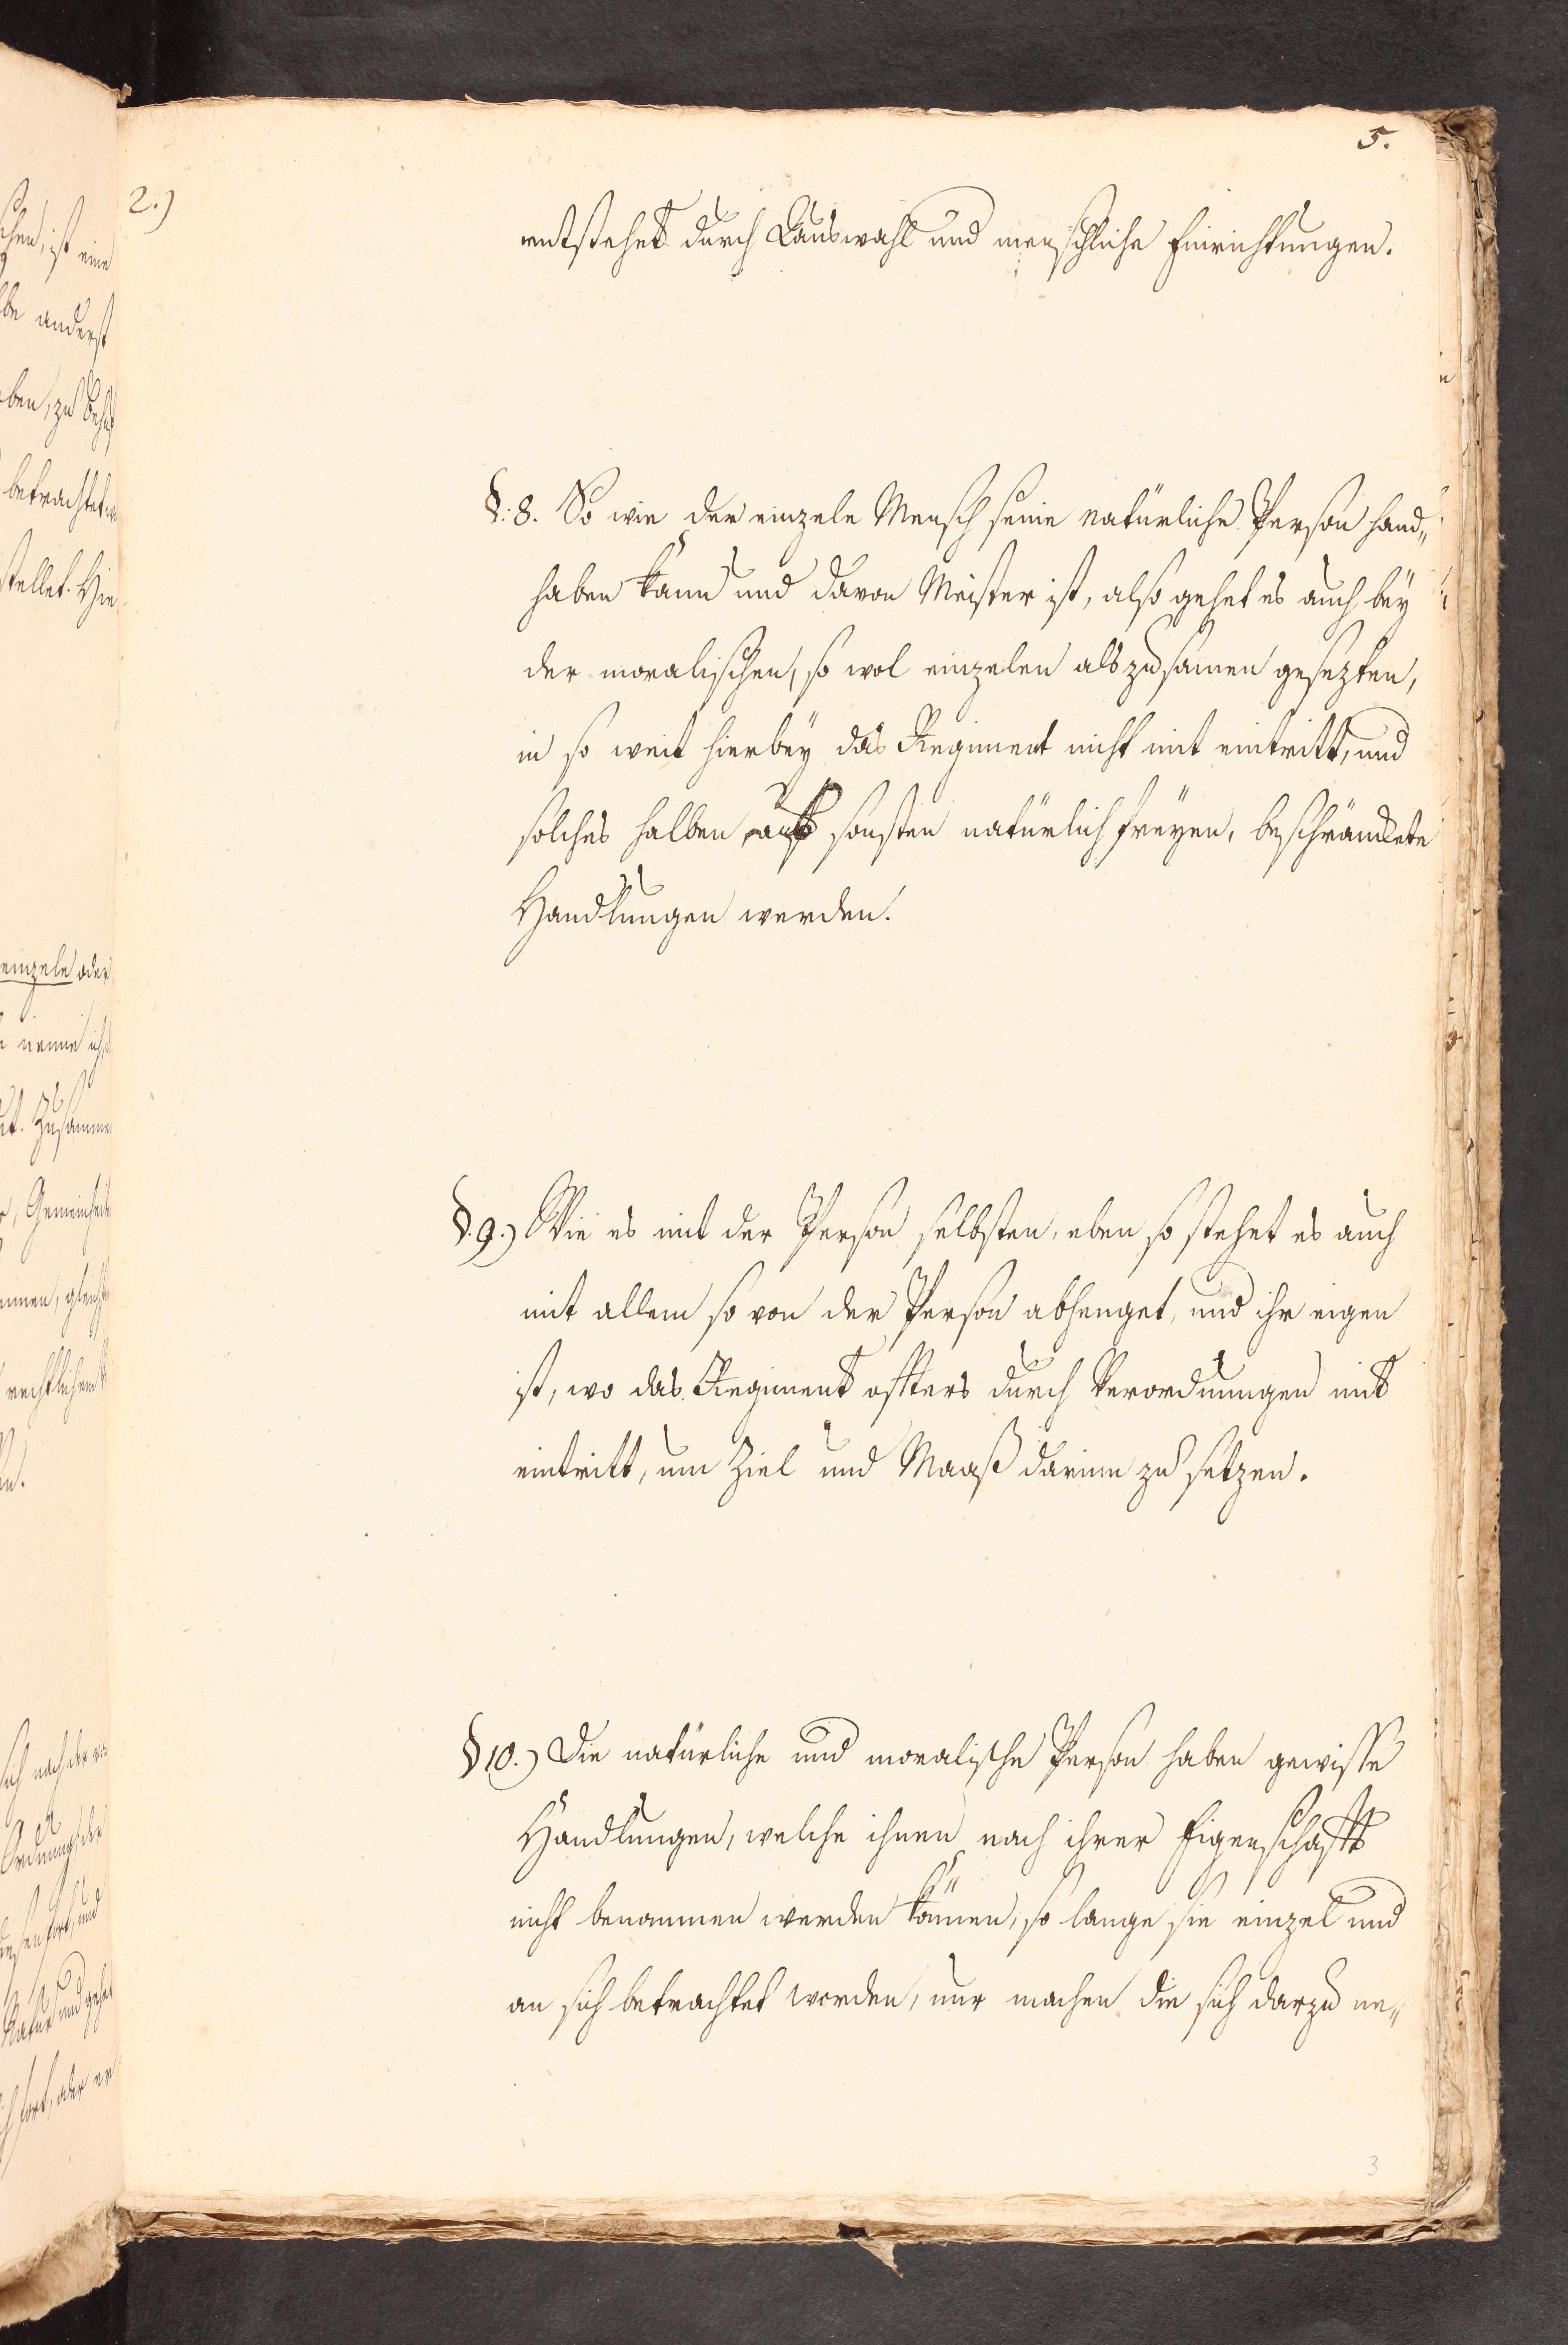 5.
2.)
entstehet durch Auswahl und menschliche Einrichtungen.
§. 8. So wie der einzele Mensch seine natürliche Person hand„
haben kann und davon Meister ist, also gehet es auch bey
der moralischen, so wol einzelen als zusamen gesezten,
in so weit hierbey das Regiment nicht mit eintritt, und
solches halben aus sonsten natürlich freyen, beschränckete
Handlungen werden.
§. 9.) Wie es mit der Person selbsten, eben so stehet es auch
mit allem so von der Person abhenget, und ihr eigen
ist, wo das Regiment offters durch Verordnungen mit
eintritt, um Ziel und Maaß darinn zu setzen.
§ 10.) Die natürliche und moralische Person haben gewisse
Handlungen, welche ihnen nach ihrer Eigenschafft
nicht benommen werden können, so lange sie einzel und
an sich betrachtet worden, nur machen die sich darzu ne„
3